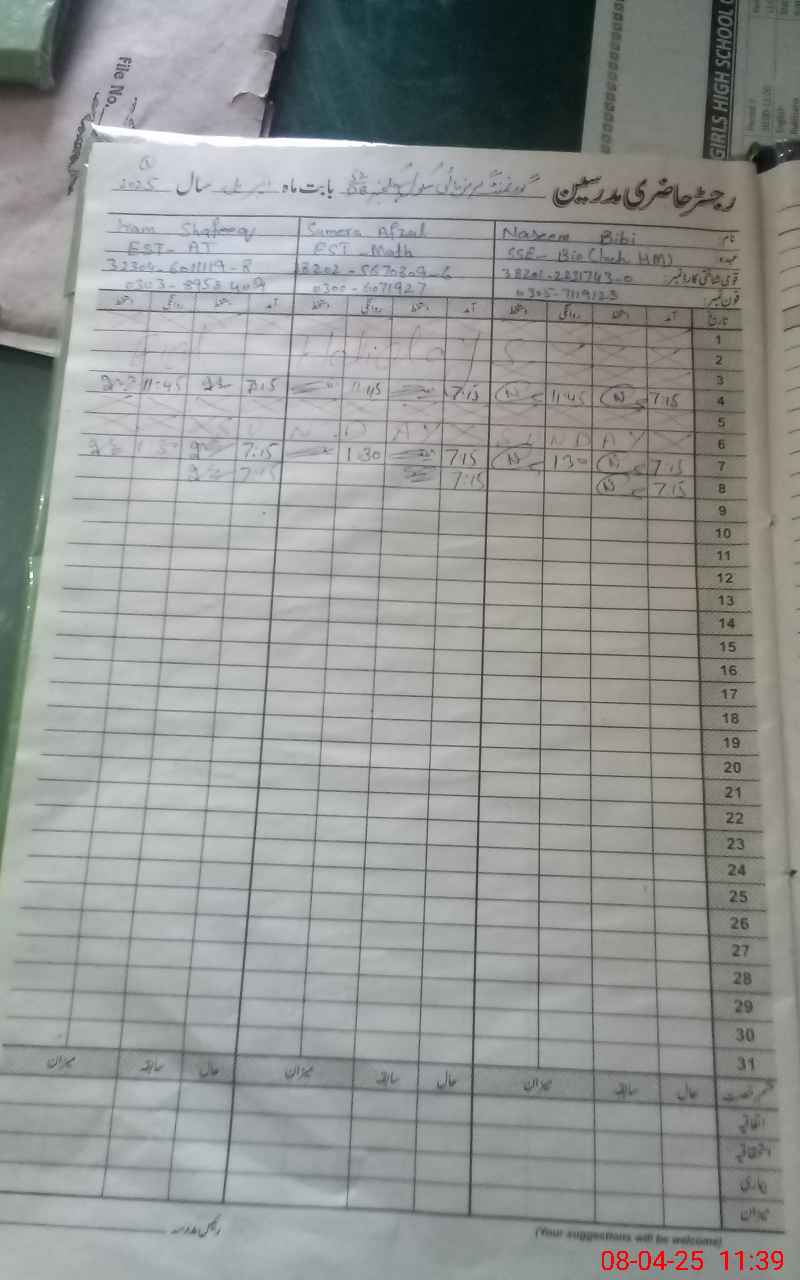 File No.
GIRLS HIGH SCHOOL
رجسٹر حاضری مدرسین
بابت ماہ اپریل سال 2025
نام Naseem Bibi Sumera Afzal Shafeeq
عہدہ SSE- Bio (Inch. HM) EST-Math EST-AT
قومی شناختی کارڈ نمبر
فون نمبر 0305-7119123 0300-6071927
تاریخ آمد دستخط روانگی دستخط آمد دستخط روانگی دستخط آمد دستخط روانگی دستخط
1
2 Holidays
3
4 7:15 11:45 7:15 11:45 7:15 11:45
5
6 SUNDAY SUNDAY
7 7:15 1:30 7:15 1:30 7:15 1:30
8 7:15 7:15 7:15
9
10
11
12
13
14
15
16
17
18
19
20
21
22
23
24
25
26
27
28
29
30
31
حال سابقہ میزان حال سابقہ میزان حال سابقہ میزان
اتفاقیہ
استحقاقیہ
بیماری
میزان
رئیس مدرسہ
(Your suggestions will be welcome)
08-04-25 11:39